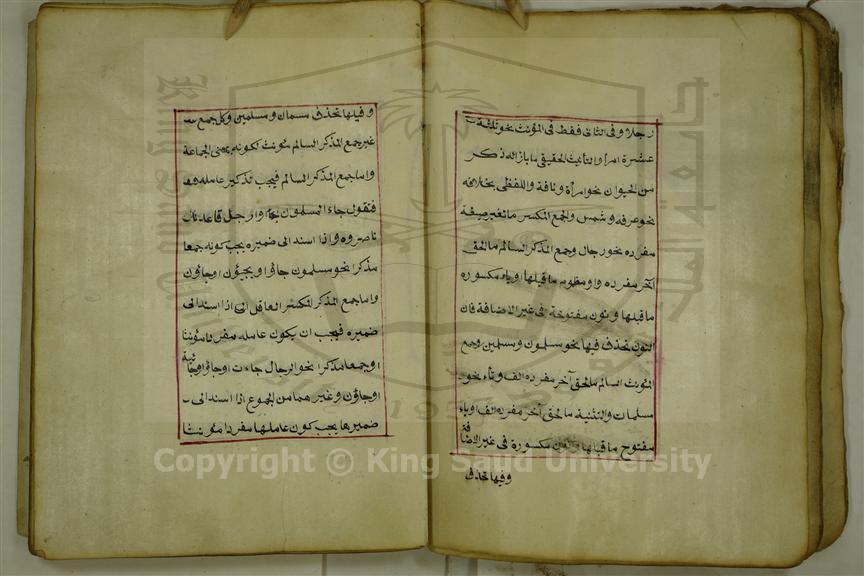 رجلا وفى الثانى فقط فى المؤنث نحو ثلثة
عشرة امرأة والتأنيث الحقيقى ما بازائه ذكر
من الحيوان نحو امرأة وناقة واللفظى بخلافه
نحو غرفه وشمس والجمع المكسر ما تغير صيغة
مفرده نحو رجال وجمع المذكر السالم ما لحق
آخر مفرده واو مضموم ما قبلها او ياء مكسوره
ما قبلها ونون مفتوحة فى غير الاضافة فان
النون تحذف فيها نحو مسلمون ومسلمين وجمع
المؤنث السالم ما لحق آخر مفرده الف وتاء نحو
مسلمات والتثنية ما لحق آخر مفرده الف او ياء
مفتوح ما قبلها ونون مكسورة فى غير الاضافة
وفيها تحذف
وفيها تحذف مسلمان ومسلمين وكل جمع
غير جمع المذكر السالم مؤنث لكونه بمعنى الجماعة
واما جمع المذكر السالم فيجب تذكير عامله
فتقول جاء المسلمون او رجل قاعد
ناصروه واذا اسند الى ضميره يجب كونه جمعا
مذكرا نحو مسلمون جاؤا او يجيؤن او جاؤن
واما جمع المذكر المكسر العاقل اذا اسند الى
ضميره فيجب ان يكون عامله مفردا مؤنثا
او جمعا مذكرا نحو الرجال جاءت او جاؤا او جائية
او جاؤن وغيرهما من الجموع اذا اسند الى
ضميرها يجب كون عاملها مفردا مؤنثا
Copyright © King Saud University
1957